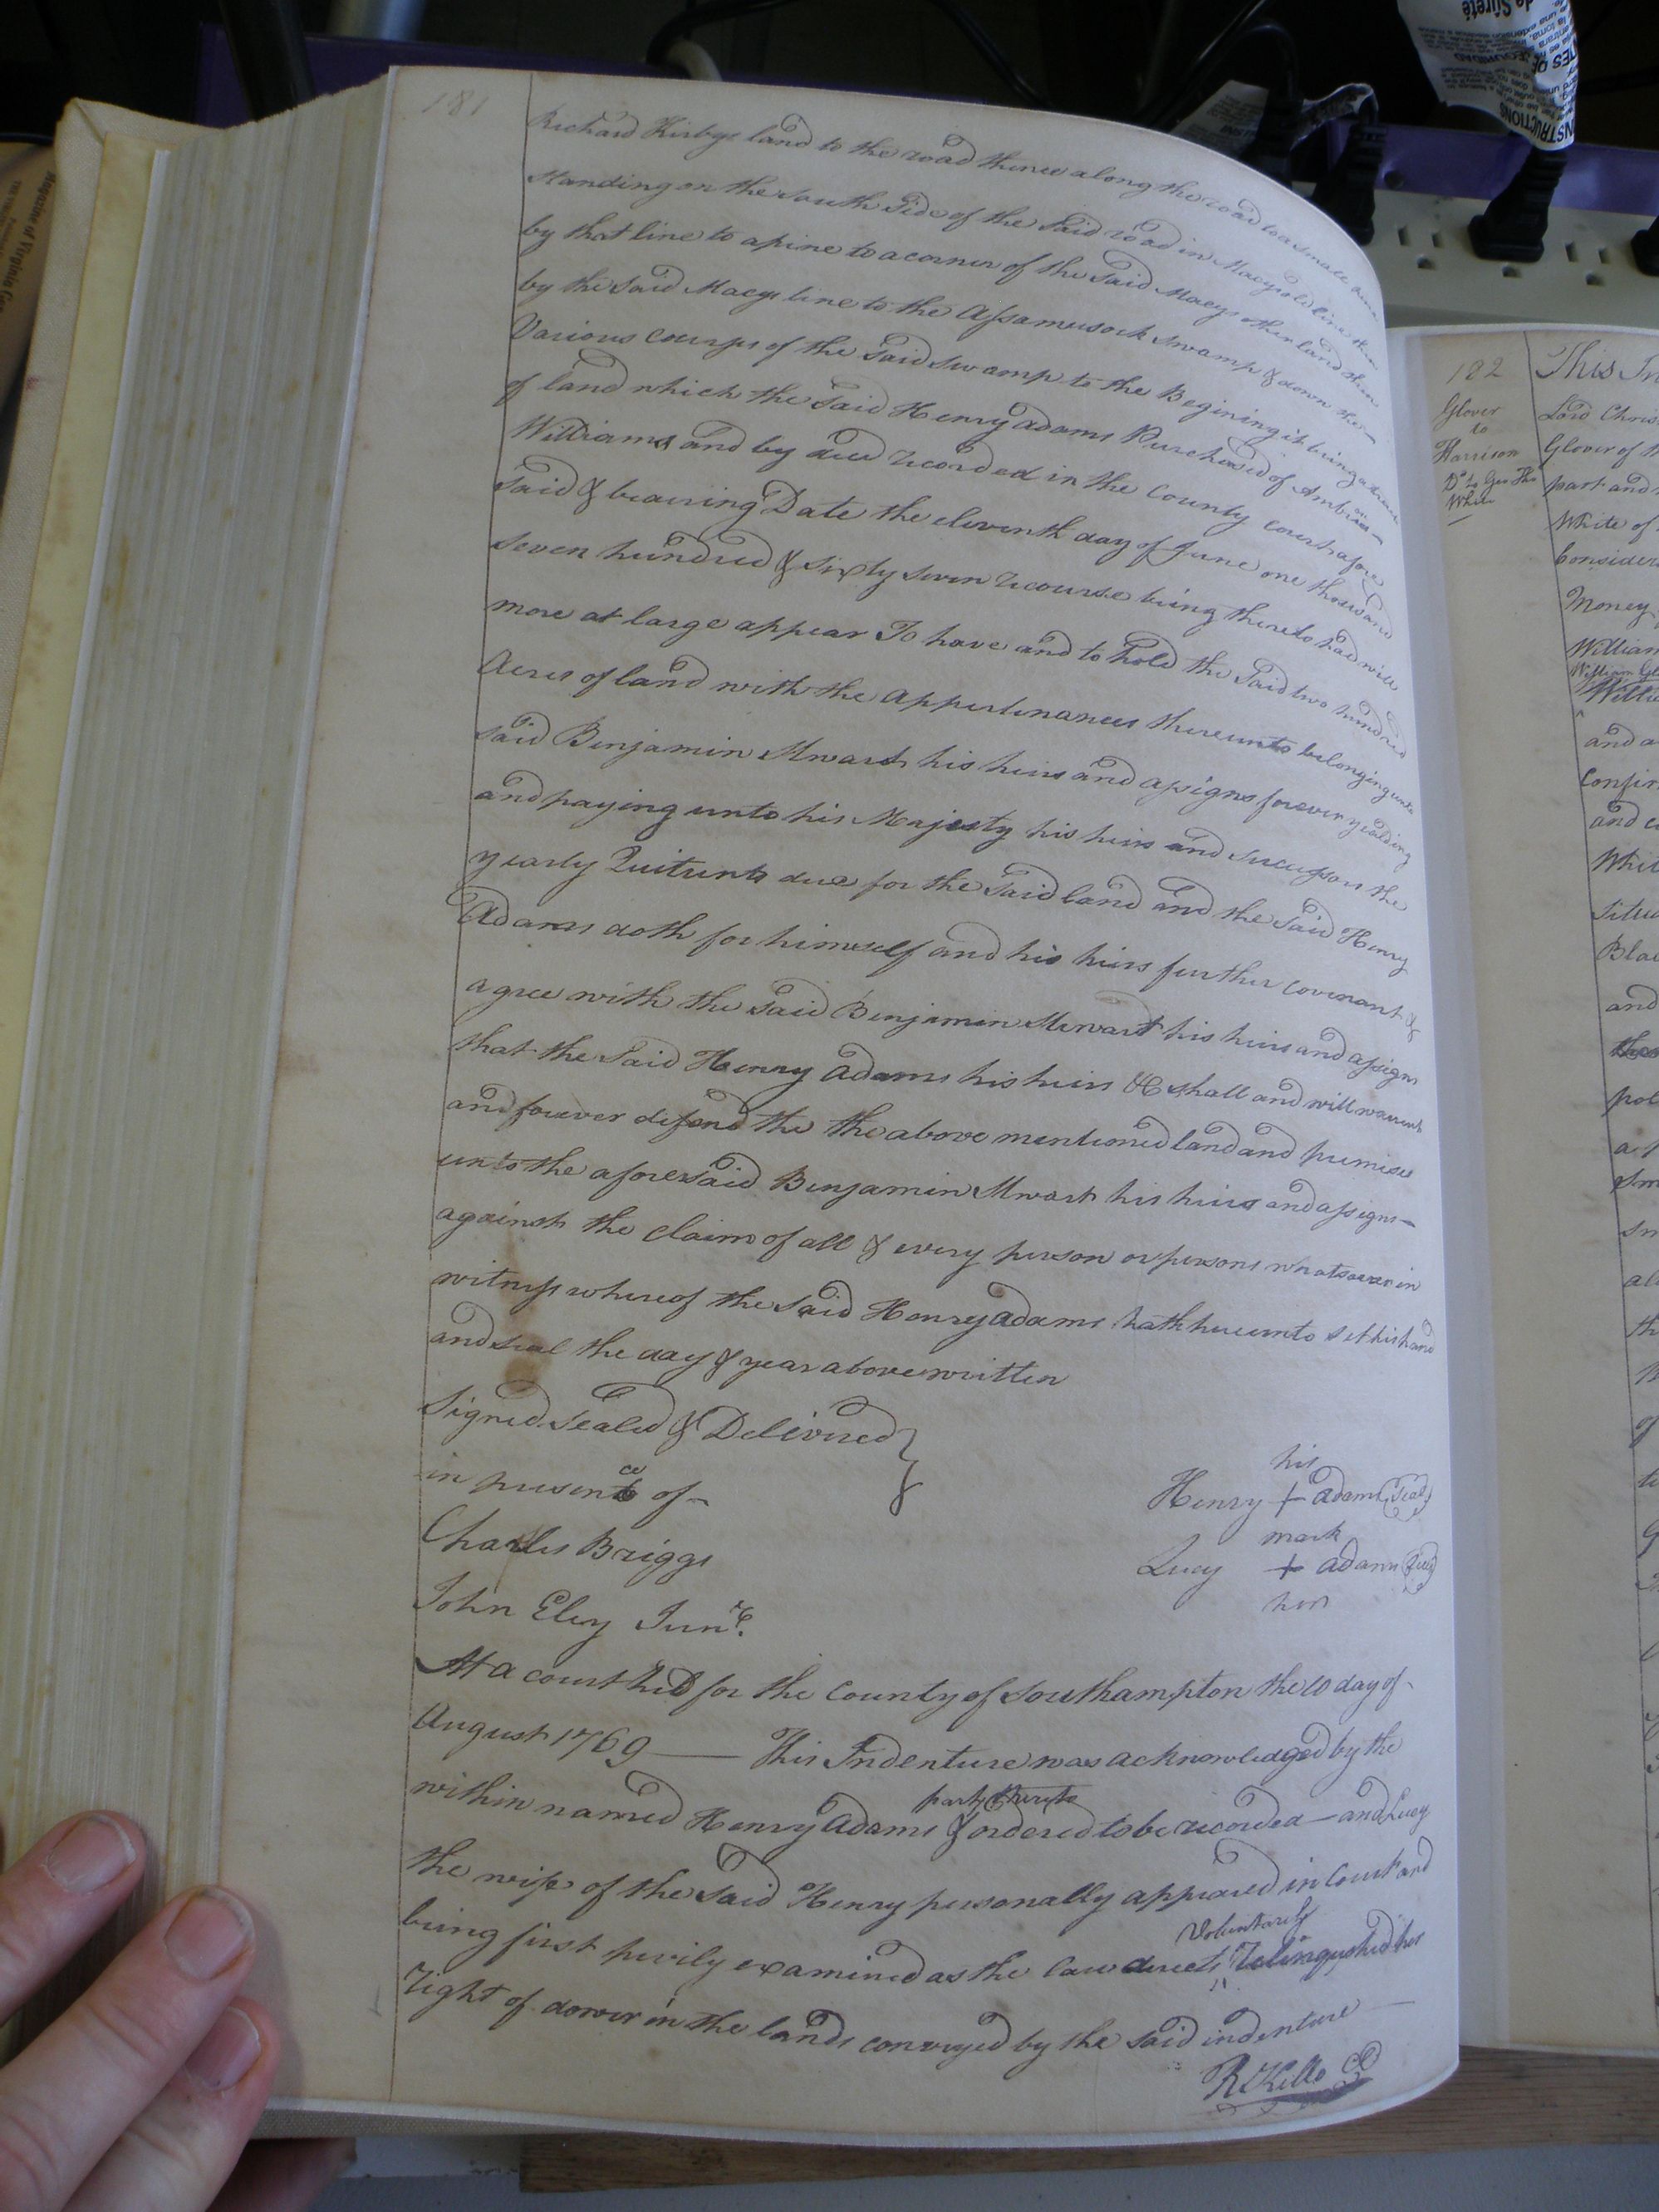 181
Richard Kirbys land to the road thence along the road to a small
standing on the South Side of the Said road in Macys old line then
by that line to a pine to a corner of the Said Macys other land then
by the said Macys line to the Assamusock Swamp & down the
Various courses of the Said Swamp to the Begining it being
of land which the Said Henry Adams Purchased of
Williams and by deed recorded in the County Court afore
Said & bearing Date the eleventh day of June one thousand
Seven hundred & sixty seven recourse being thereto had will
more at large appear To have and to hold the Said two hundred
Acres of land with the appertenances thereunto belonging unto
Said Benjamin Stwart his heirs and assigns forever yealding
and paying unto his Majesty his heirs and successors the
yearly Quitrents due for the Said land and the Said Henry
Adams doth for himself and his heirs further covenant &
agree with the Said Benjamin Stewart his heirs and assigns
that the Said Henry Adams his heirs &c shall and will warrent
and forever defend the the above mentioned land and premises
unto the aforesaid Benjamin Stwart his heirs and assigns
against the Claim of all & every person or persons whatsoever in
witness whereof the Said Henry Adams hath hereunto set his hand
and seal the day & year above written
Signed Sealed & Delivered
in presence of
his
Henry + Adams (Seal)
mark
Charles Briggs
Lucy + Adams (Seal)
her
John Eley Junr.
At a court held for the County of Southampton the 10 day of
August 1769 — This Indenture was acknowledged by the
party thereto
within named Henry Adams & ordered to be recorded — and Lucy
the wife of the Said Henry personally appeared in Court and
Voluntarily
being first privily examined as the law directs relinquished her
right of dower in the lands conveyed by the said indenture
R Kello CC
182
Glover
to
Harrison
Do to Geo Tho
White
This In
Lord Chris
Glover of
part and
White of
Consider
Money
William
William Gl
and a
Confir
and
Whit
Situa
Bla
and
pol
a p